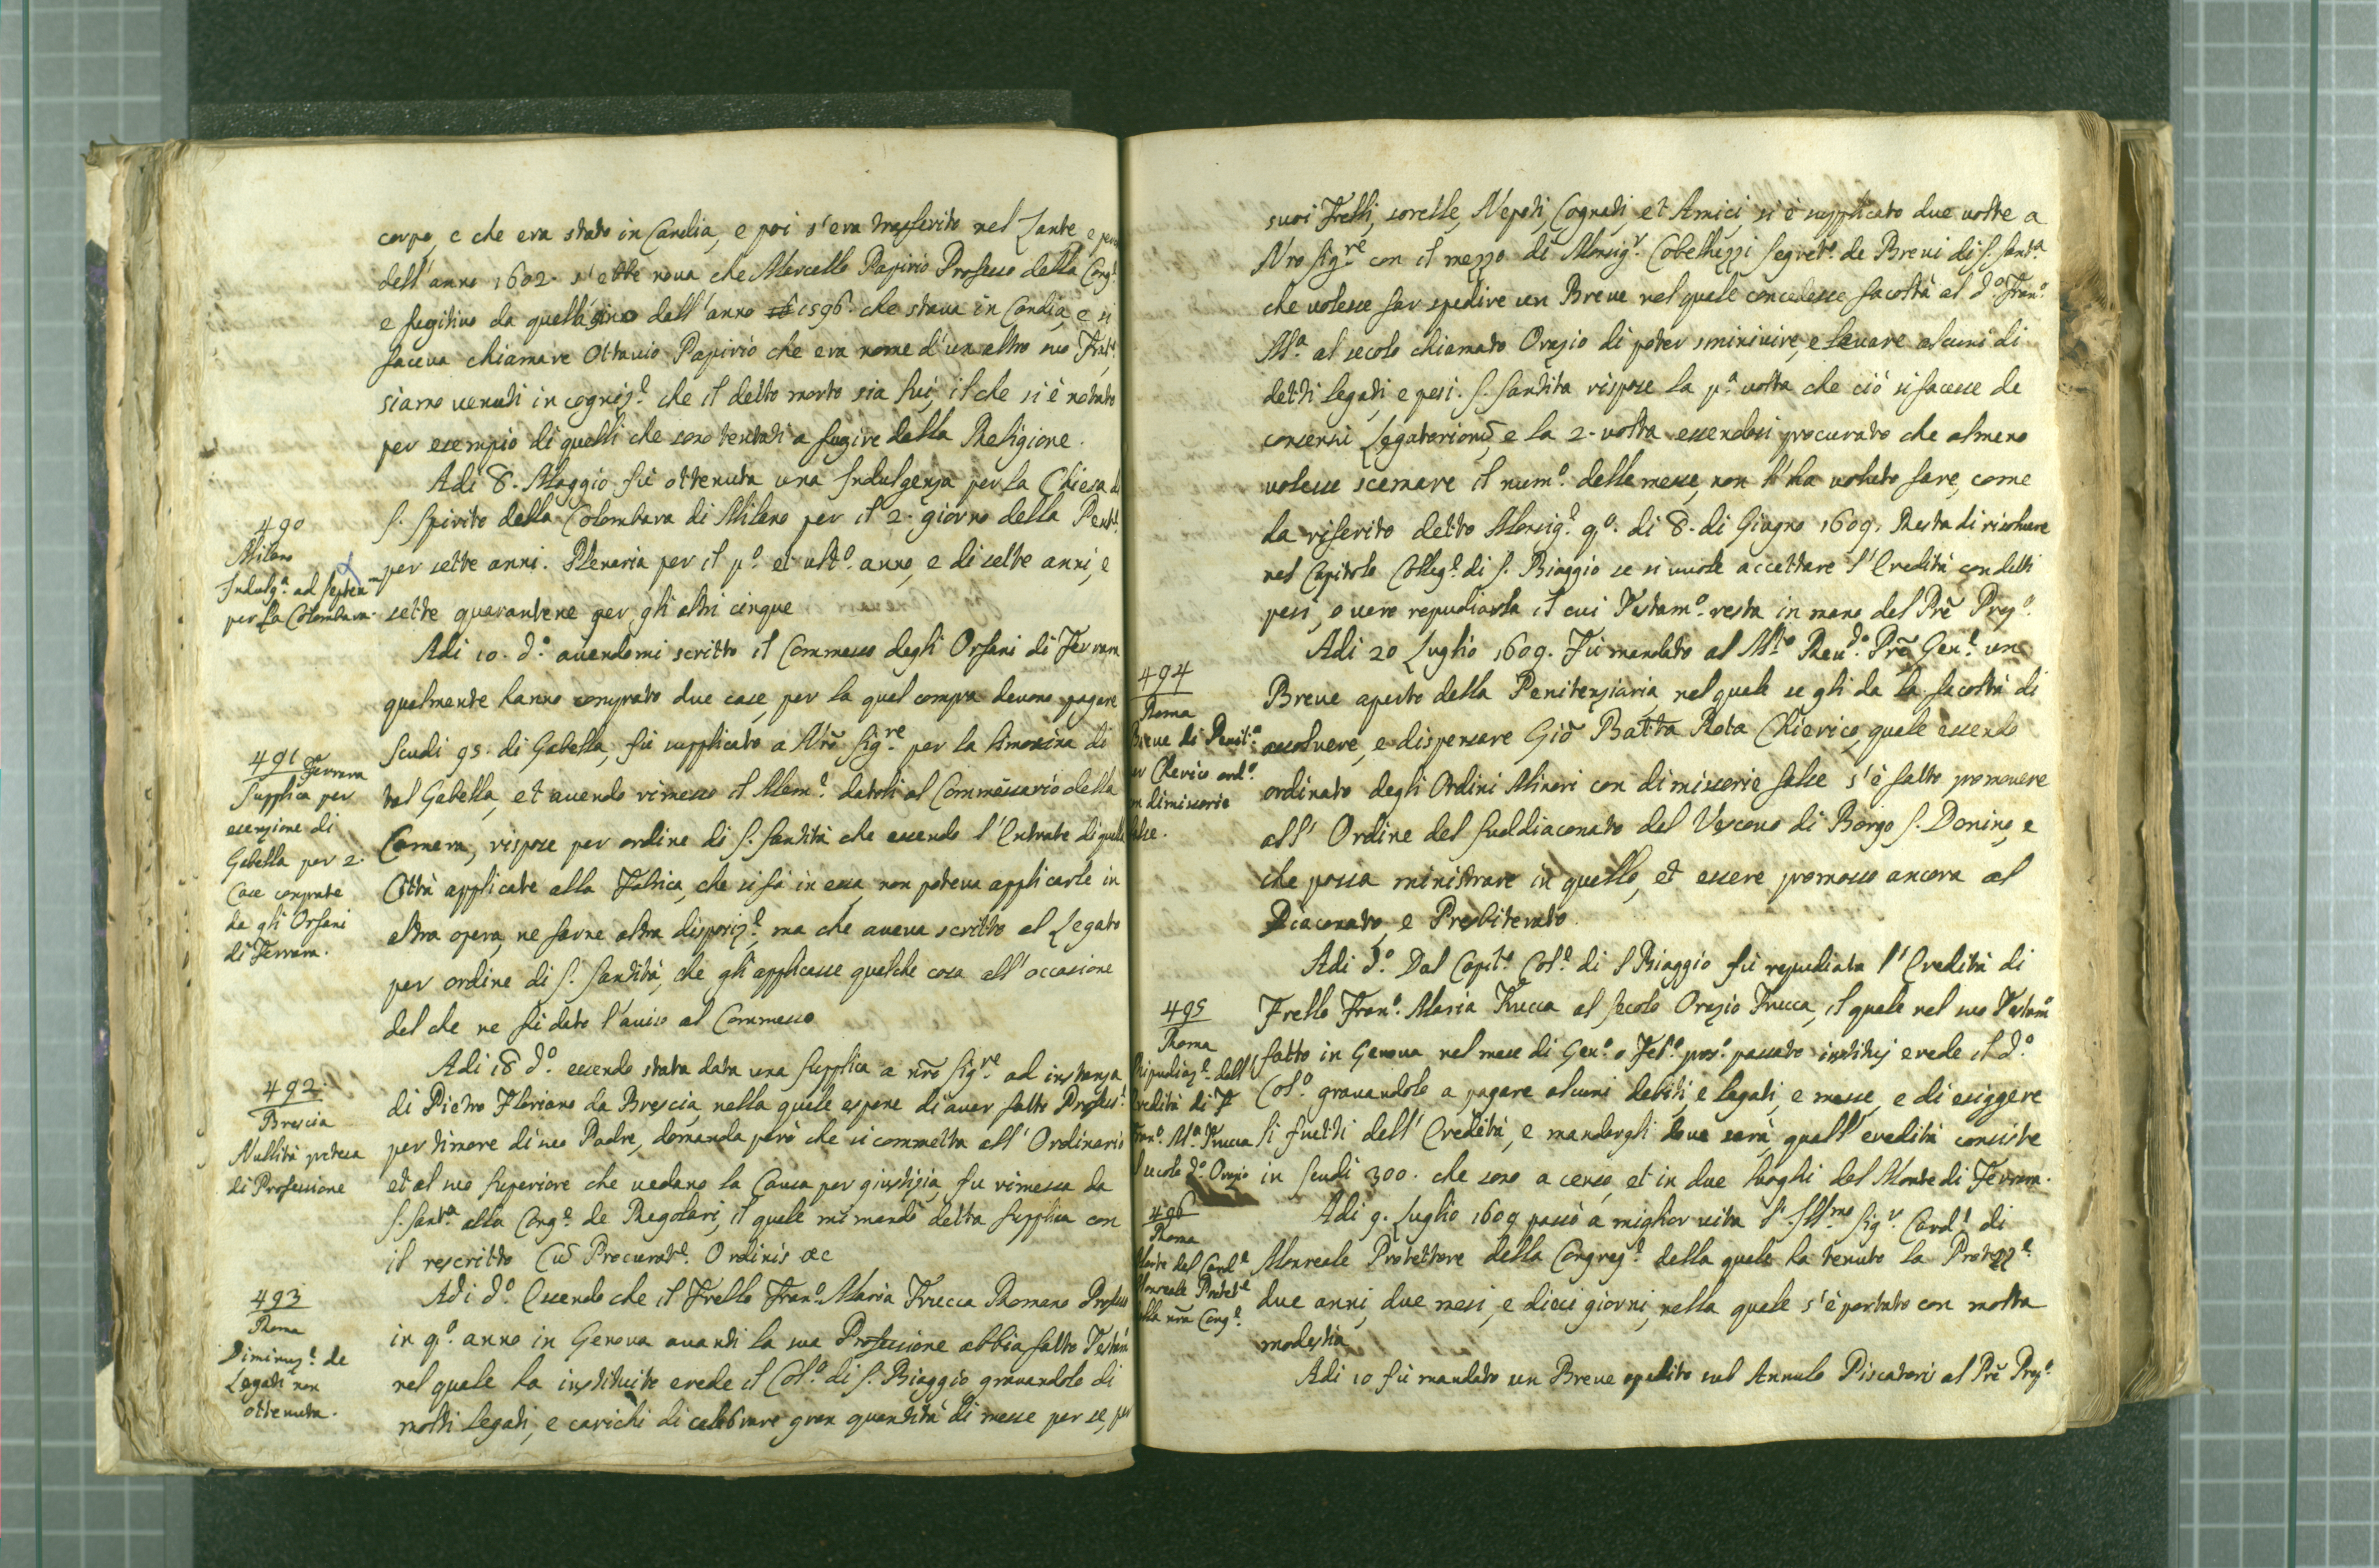 corpo, e che era stato in Candia, e poi s'era trasferito nel Zante e perchè
dell'anno 1602. s'ebbe nova che Marcello Papirio Professo della Cong.ᵉ
e fugitivo da quella sino dall'anno 1596. che stava in Candia, e si
faceva chiamare Ottavio Papirio che era nome d'un altro suo Frat.ˡᵒ
siamo venuti in cogniz.ᵉ che il detto morto sia lui, il che si è notato
per esempio di quelli che sono tentati a fugire dalla Religione.
490
Milano
Indulg.ᵃ ad Septen
per la Colombara.
Adi 8. Maggio fù ottenuta una Indulgenza per la Chiesa di
S. Spirito della Colombara di Milano per il 2. giorno della Pent.ᵉ
per sette anni. Plenaria per il p.º et ult.º anno, e di sette anni, e
sette quarantene per gli altri cinque
491
Ferrara
Supplica per
esenzione di
Gabella per 2.
Case comprate
da gli Orfani
di Ferrara.
Adi 10. d.º avendomi scritto il Commesso degli Orfani di Ferrara
qualmente hanno comprato due case, per la qual compra devono pagare
Scudi 95. di Gabella, fù supplicato a Nrõ Sig.ʳᵉ per la limosina di
tal Gabella, et avendo rimesso il Mem.ᵉ datoli al Commessario della
Camera, rispose per ordine di S. Santità che essendo l'Entrate di quella
Città applicate alla Fabrica, che si fà in essa, non poteva applicarle in
altra opera, ne farne altra disposiz.ᵉ, ma che aveva scritto al Legato
per ordine di S. Santità, che gli applicasse qualche cosa all'occasione
del che ne fù dato l'aviso al Commesso
492
Brescia
Nullità pretesa
di Professione
Adi 18 d.º essendo stata data una supplica a nrõ Sig.ʳᵉ ad instanza
di Pietro Floriano da Brescia, nella quale espone di aver fatto Profess.ᵉ
per timore di suo Padre, domanda però che si commetta all'Ordinario
et al suo Superiore che vedano la Causa per giustizia, fu rimessa da
S. Sant.ᵃ alla Cong.ᵉ de Regolari, il quale mi mandò detta supplica con
il rescritto Cũ Procurat.ᵉ Ordinis &c
493
Roma
Diminuz.ᵉ de
Legati non
ottenuta.
Adi d.º Essendo che il Frello Fran.º Maria Trucca Romano Professo
in q.º anno in Genova avanti la sua Professione abbia fatto Testam
nel quale ha instituito erede il Col.º di S. Biaggio gravandolo di
molti legati, e carichi di celebrare gran quantità di messe per se, per
suoi Frelli, sorelle, Nepoti, Cognati, et Amici, si è supplicato due volte a
Nro Sig.ʳᵉ con il mezzo di Monsig.ʳ Cobelluzzi Segret.º de Brevi di S. Sant.ᵃ
che volesse far spedire un Breve nel quale concedesse facoltà al d.º Fran.º
M.ᵃ al secolo chiamato Orazio di poter sminuire, e levare alcuni di
detti legati, e pesi. S. Santità rispose la p.ᵃ volta che ciò si facesse de
consensu Legatoriorũ, e la 2. volta essendosi procurato che almeno
volesse scemare il num.º delle messe, non l'ha voluto fare, come
ha riferito detto Monsig.ʳ q.º. dì 8. di Giugno 1609. Resta di risolvere
nel Capitolo Colleg.ᵉ di S. Biaggio se si vuole accettare l'Eredità con detti
pesi, o vero repudiarla il cui Testam.º resta in mano del Prẽ Prep.º
494
Roma
Breve di Penit.ᵃ
per Chierico ord.º
con dimissorie
false.
Adi 20 Luglio 1609. Fù mandato al M.ᵗᵒ Rev.ᵈᵒ Prẽ Gen.ˡᵉ un
Breve aperto della Penitenziaria, nel quale se gli da la facoltà di
assolvere, e dispensare Giõ Batta Rota Chierico, quale essendo
ordinato degli Ordini Minori con dimissorie false s'è fatto promovere
all'Ordine del Suddiaconato dal Vescovo di Borgo S. Donino, e
che possa ministrare in quello, et essere promosso ancora al
Diaconato, e Presbiterato.
495
Roma
Ripudiaz.ᵉ dell'
Eredità di F
Fran.º M.ᵃ Trucca
al secolo d.º Orazio
Adi d.º Dal Capit.º Col.ᵉ di S Biaggio fù repudiata l'Eredità di
Frello Fran.º Maria Trucca al secolo Orazio Trucca, il quale nel suo Testam.º
fatto in Genova nel mese di Gen.º o Feb.º pros.º passato instituj erede il d.º
Col.º gravandolo a pagare alcuni debiti, e legati, e messe, e di esiggere
li frutti dell'Eredità, e mandargli dove sarà, quall'eredità consiste
in scudi 300. che sono a censo, et in due luoghi del Monte di Ferrara.
496
Roma
Morte del Card.ᵉ
Monreale Protet.ᵉ
della nrã Cong.ᵉ
Adi 9. Luglio 1609 passò a miglior vita l'Ill.ᵐᵒ Sig.ʳ Card.ˡ di
Monreale Protettore della Congreg.ᵉ della quale ha tenuto la Protezz.ᵉ
due anni, due mesi, e dieci giorni, nella quale s'è portato con molta
modestia
Adi 10 fù mandato un Breve spedito sub Annulo Piscatoris al Prẽ Prep.º